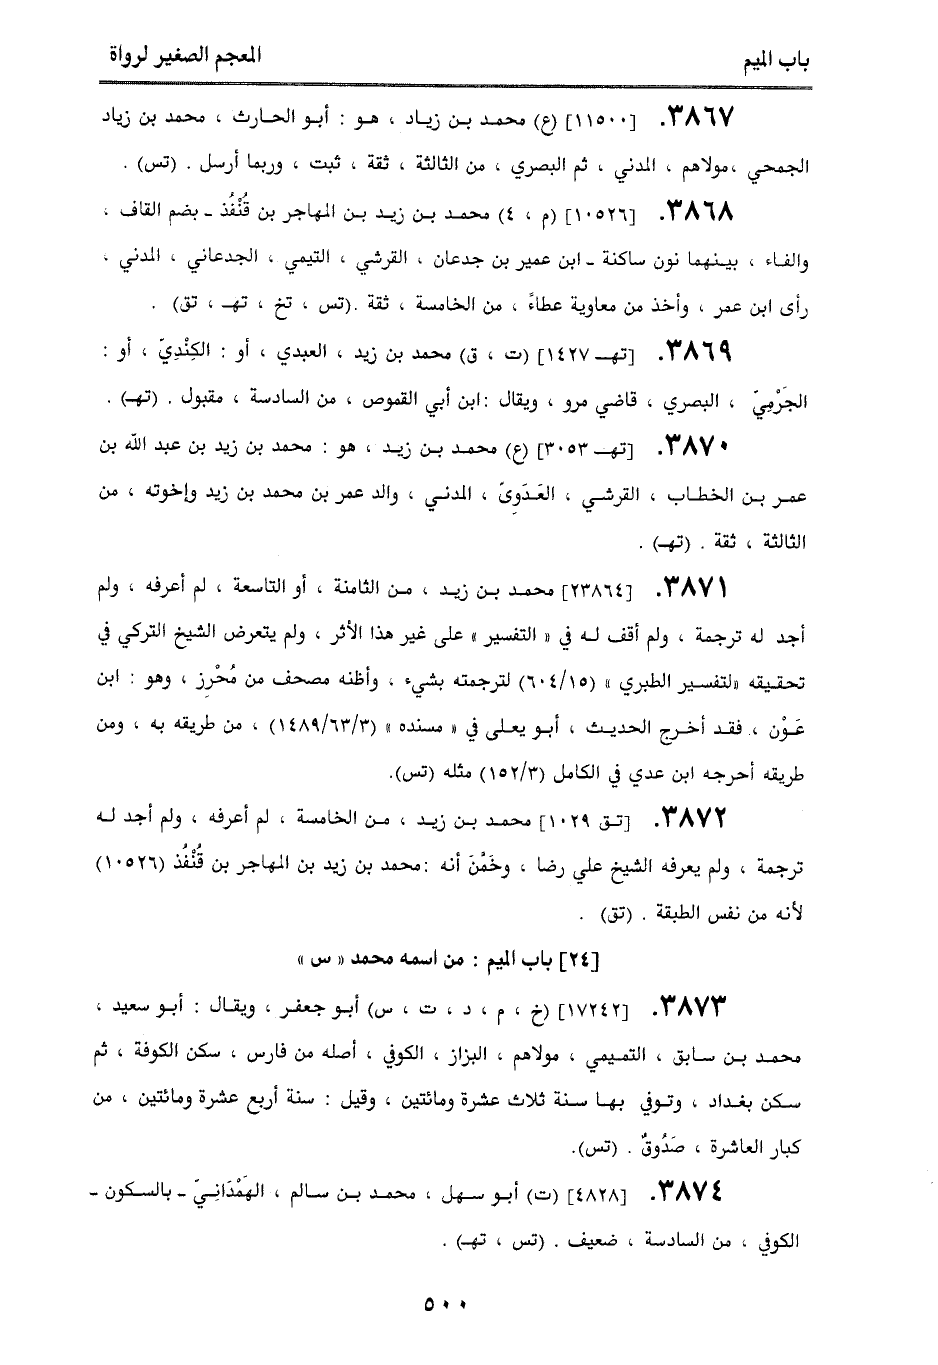 باب الميم
المعجم الصغير لرواة
٣٨٦٧. [١١٥٠٠] (ع) محمد بن زياد ، هو : أبو الحارث ، محمد بن زياد
الجمحي ،مولاهم ، المدني ، ثم البصري ، من الثالثة ، ثقة ، ثبت ، وربما أرسل . (تس) .
٣٨٦٨. [١٠٥٢٦] (م ، ٤) محمد بن زيد بن المهاجر بن قُنْفُذ ـ بضم القاف ،
والفاء ، بينهما نون ساكنة ـ ابن عمير بن جدعان ، القرشي ، التيمي ، الجدعاني ، المدني ،
رأى ابن عمر ، وأخذ من معاوية عطاءً ، من الخامسة ، ثقة .(تس ، تخ ، تهـ ، تق) .
٣٨٦٩. [تهـ ١٤٢٧] (ت ، ق) محمد بن زيد ، العبدي ، أو : الكِنْدِيّ ، أو :
الجَرْمِيّ ، البصري ، قاضي مرو ، ويقال :ابن أبي القموص ، من السادسة ، مقبول . (تهـ) .
٣٨٧٠. [تهـ ٣٠٥٣] (ع) محمد بن زيد ، هو : محمد بن زيد بن عبد الله بن
عمر بن الخطاب ، القرشي ، العَدَوِيّ ، المدني ، والد عمر بن محمد بن زيد وإخوته ، من
الثالثة ، ثقة . (تهـ) .
٣٨٧١. [٢٣٨٦٤] محمد بن زيد ، من الثامنة ، أو التاسعة ، لم أعرفه ، ولم
أجد له ترجمة ، ولم أقف له في « التفسير » على غير هذا الأثر ، ولم يتعرض الشيخ التركي في
تحقيقه «لتفسير الطبري » (٦٠٤/١٥) لترجمته بشيء ، وأظنه مصحف من مُحْرِز ، وهو : ابن
عَوْن ، فقد أخرج الحديث ، أبو يعلى في « مسنده » (١٤٨٩/٦٣/٣) ، من طريقه به ، ومن
طريقه أحرجه ابن عدي في الكامل (١٥٢/٣) مثله (تس).
٣٨٧٢. [تق ١٠٢٩] محمد بن زيد ، من الخامسة ، لم أعرفه ، ولم أجد له
ترجمة ، ولم يعرفه الشيخ علي رضا ، وخَمَّنَ أنه :محمد بن زيد بن المهاجر بن قُنْفُذ (١٠٥٢٦)
لأنه من نفس الطبقة . (تق) .
[٢٤] باب الميم : من اسمه محمد « س »
٣٨٧٣. [١٧٢٤٢] (خ ، م ، د ، ت ، س) أبو جعفر ، ويقال : أبو سعيد ،
محمد بن سابق ، التميمي ، مولاهم ، البزاز ، الكوفي ، أصله من فارس ، سكن الكوفة ، ثم
سكن بغداد ، وتوفي بها سنة ثلاث عشرة ومائتين ، وقيل : سنة أربع عشرة ومائتين ، من
كبار العاشرة ، صَدُوقٌ . (تس).
٣٨٧٤. [٤٨٢٨] (ت) أبو سهل ، محمد بن سالم ، الهَمْدَانِيّ ـ بالسكون ـ
الكوفي ، من السادسة ، ضعيف . (تس ، تهـ) .
٥٠٠